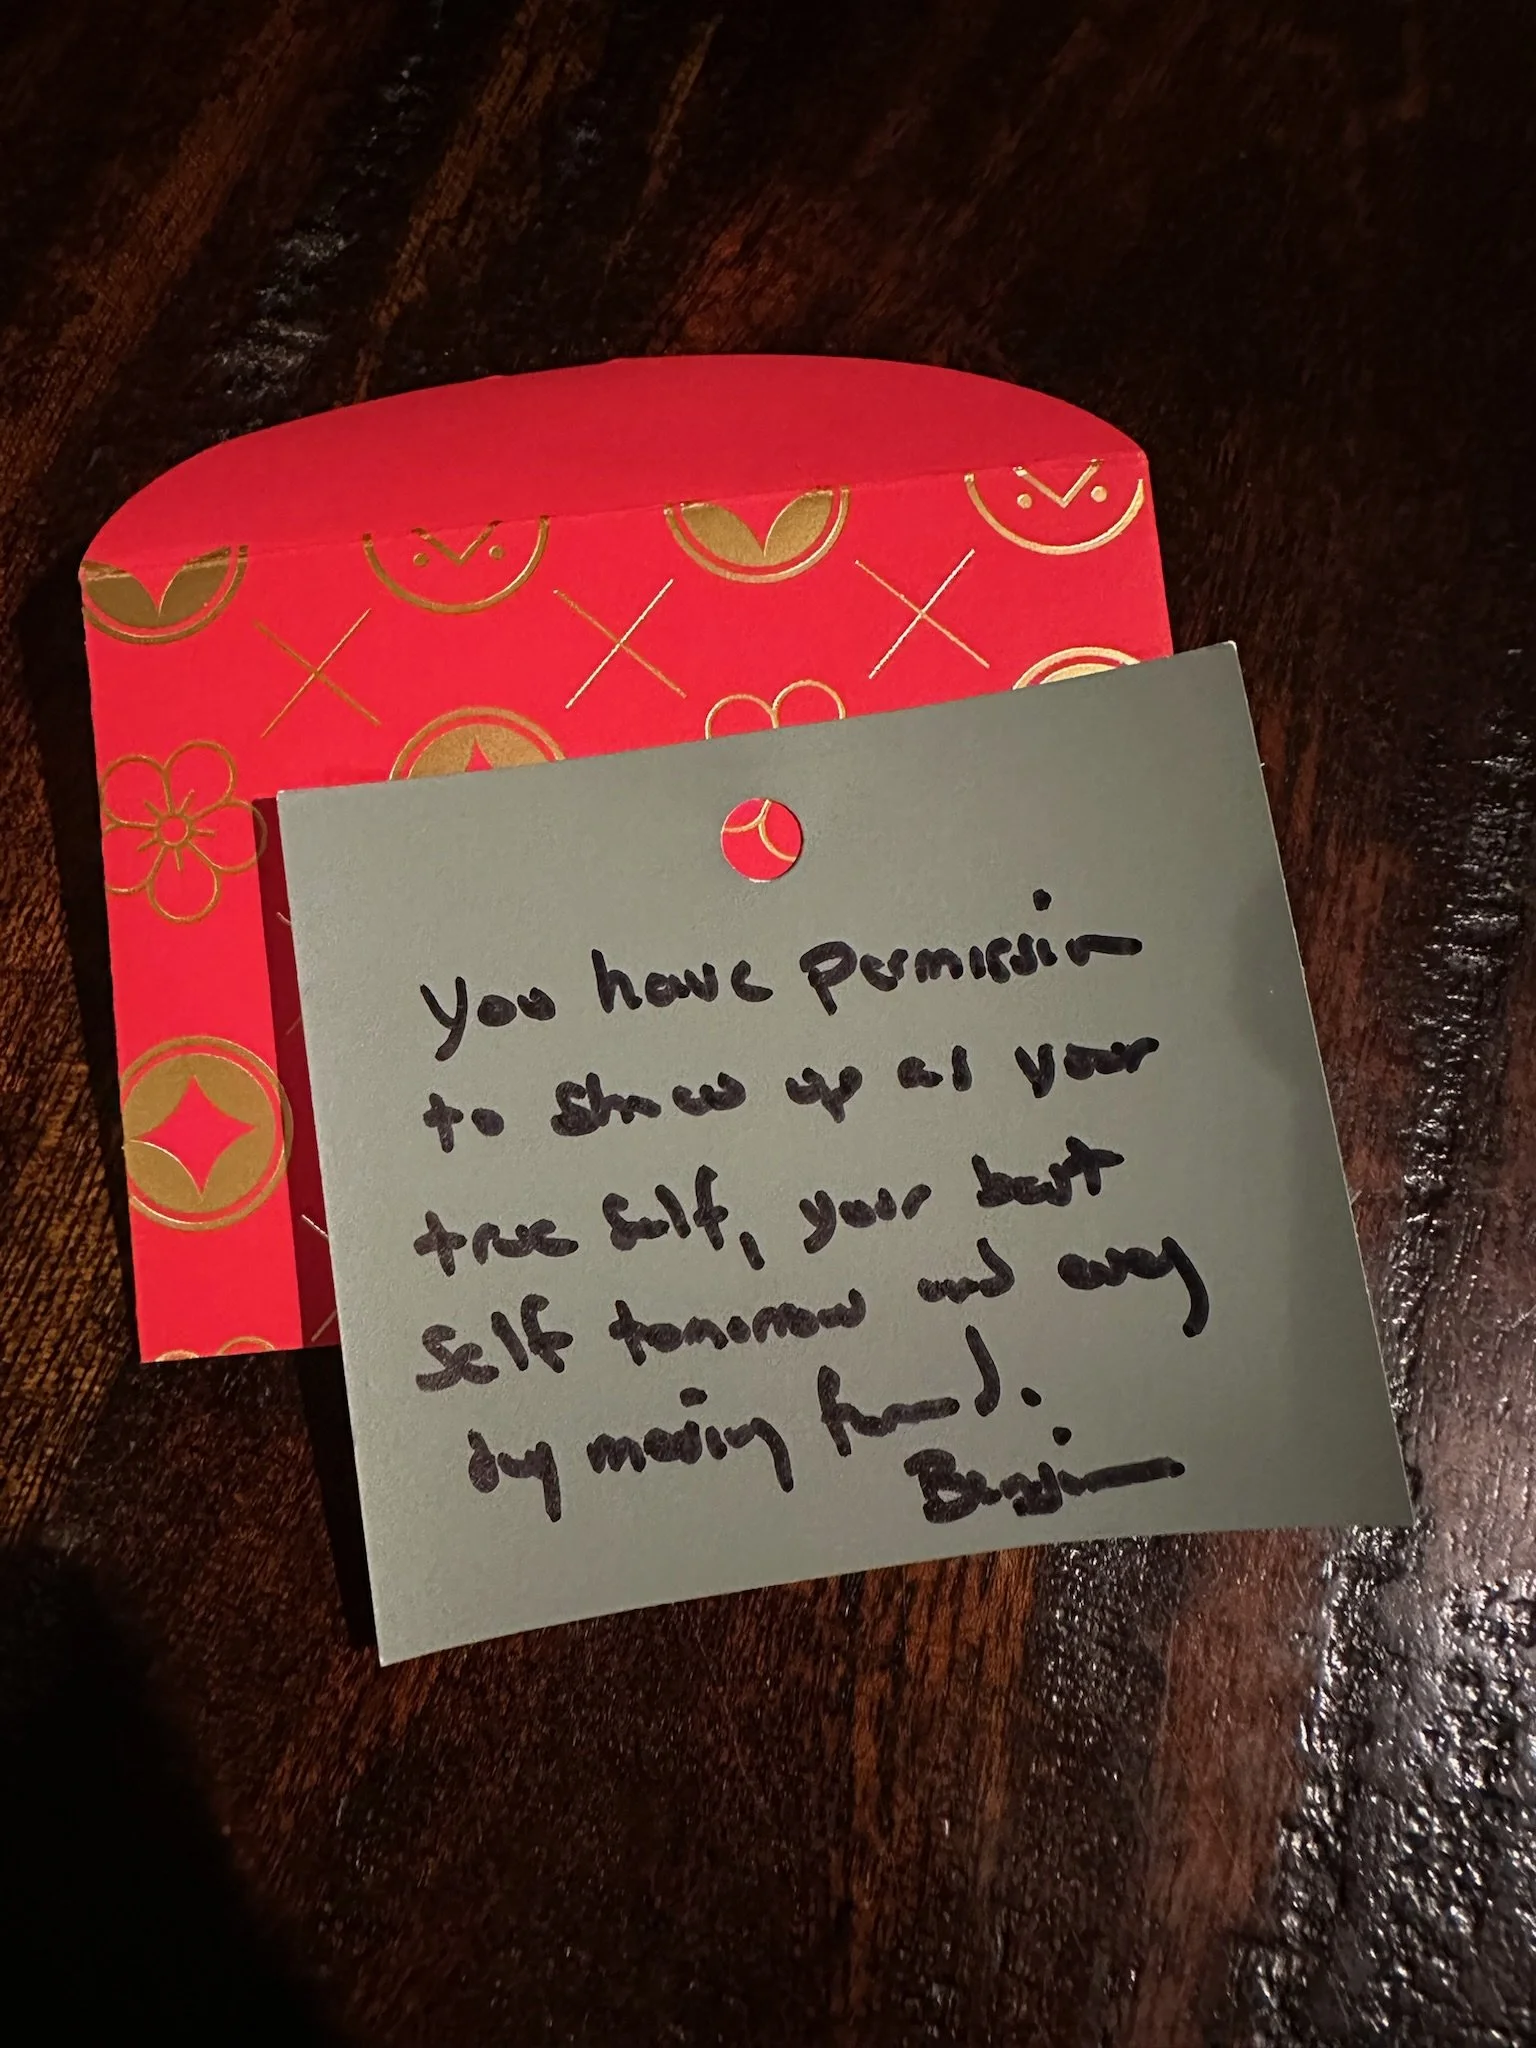 You have permission
to show up as your
true self, your best
self tomorrow and every
day moving forward.
Benjamin